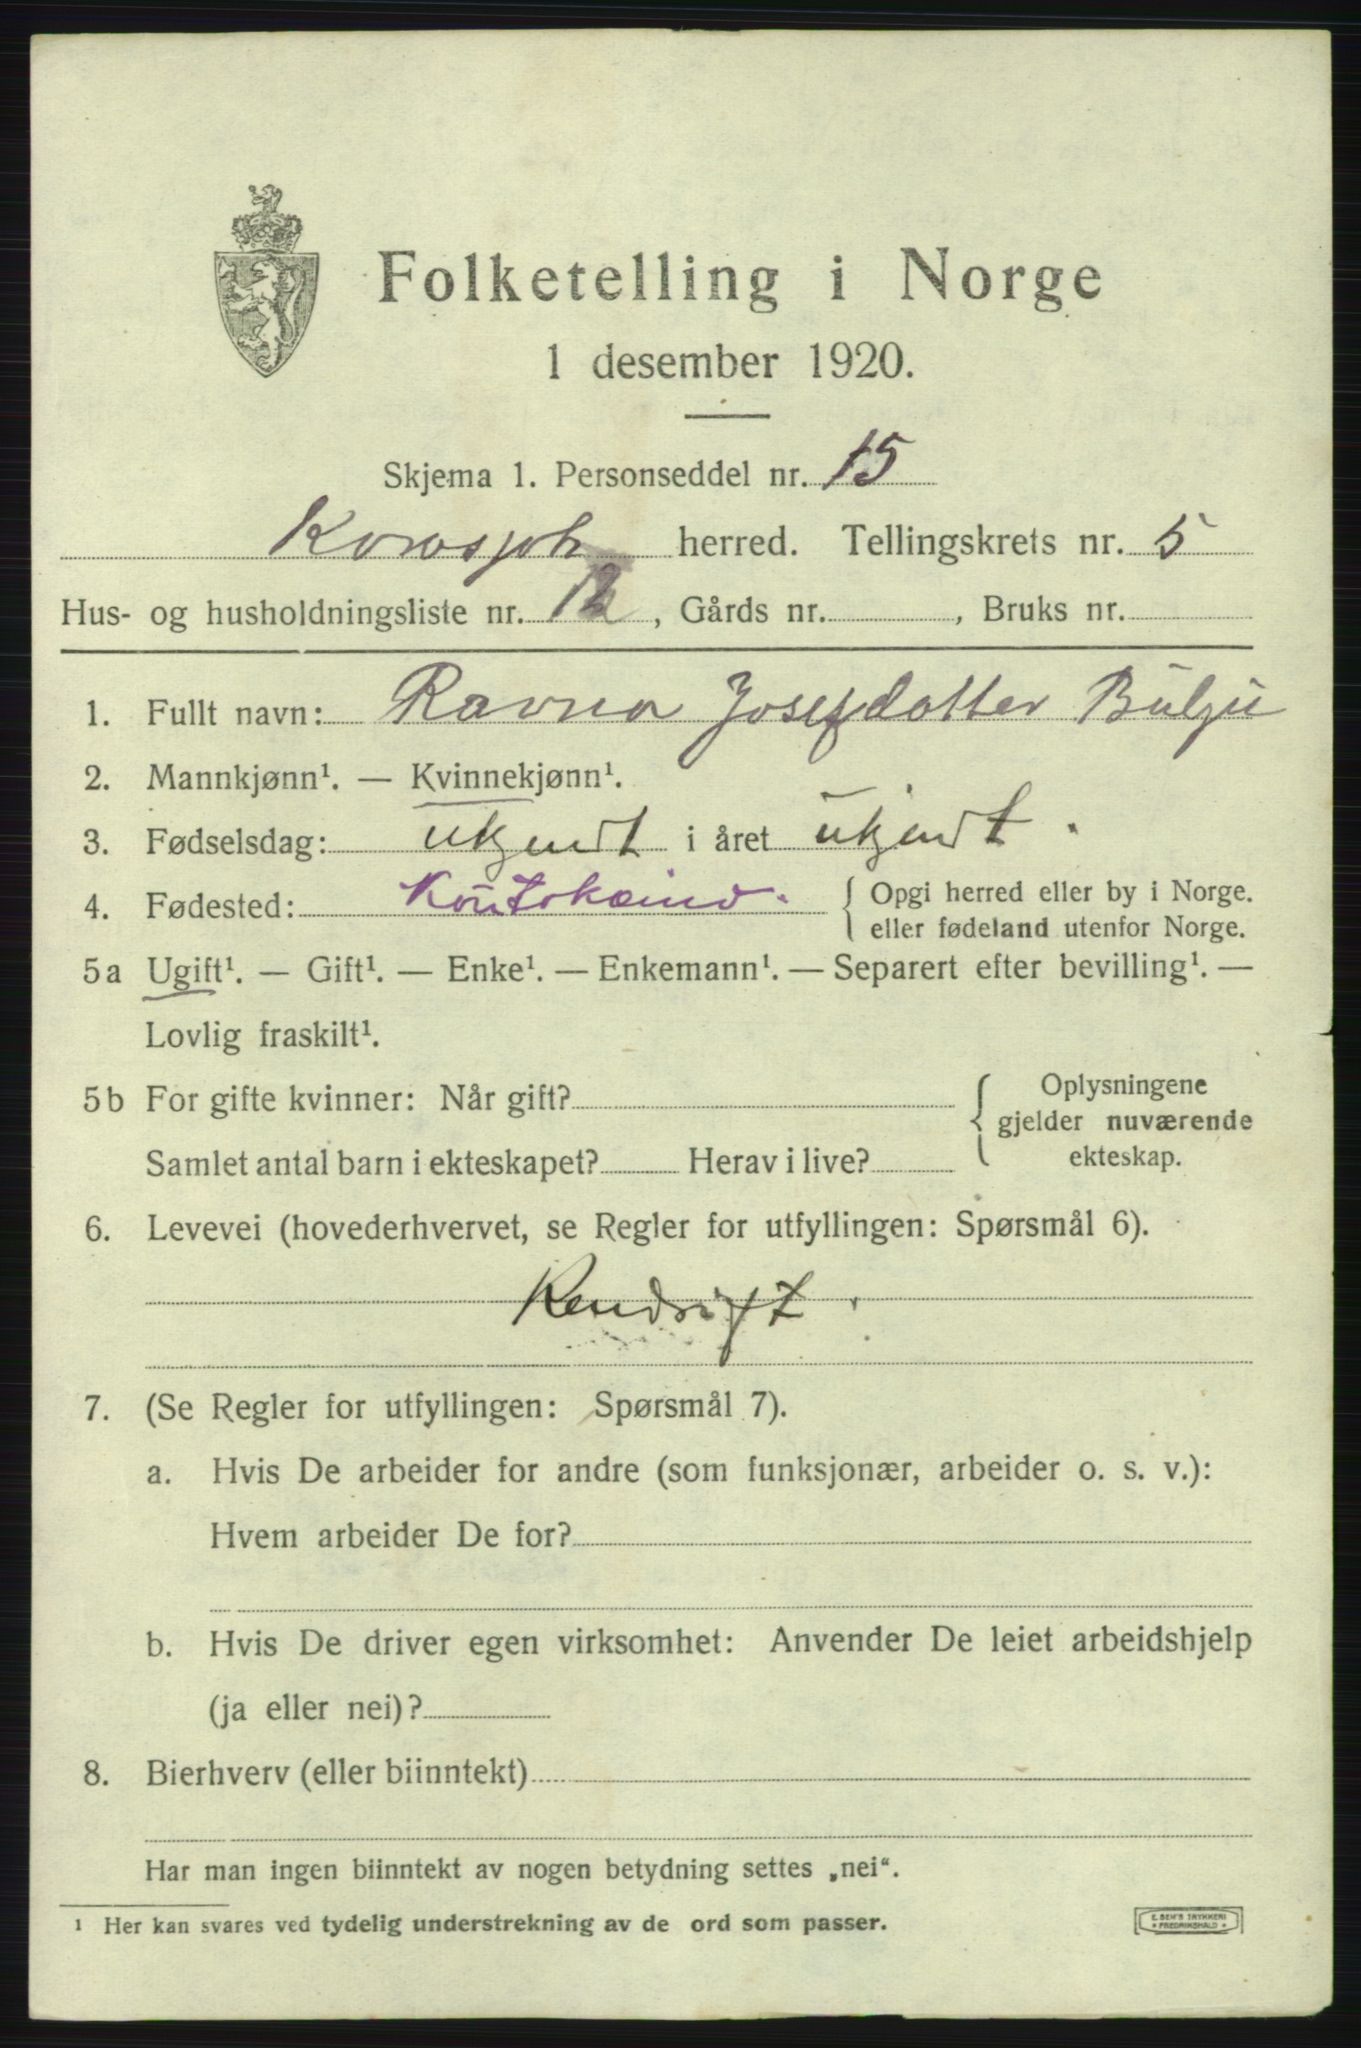 Folketelling i Norge
1 desember 1920.
Skjema 1. Personseddel nr. 15
herred. Tellingskrets nr. 5
Hus- og husholdningsliste nr. 12, Gårds nr. , Bruks nr.
1. Fullt navn: Ravna Josefdatter Bulju
2. Mannkjønn¹. — Kvinnekjønn¹.
3. Fødselsdag: ukjendt i året ukjendt.
4. Fødested: Koutokeino. Opgi herred eller by i Norge.
eller fødeland utenfor Norge.
5a Ugift¹. — Gift¹. — Enke¹. — Enkemann¹. — Separert efter bevilling¹. —
Lovlig fraskilt¹.
5b For gifte kvinner: Når gift? Oplysningene
gjelder nuværende
Samlet antal barn i ekteskapet? Herav i live? ekteskap.
6. Levevei (hovederhvervet, se Regler for utfyllingen: Spørsmål 6).
Rendrift.
7. (Se Regler for utfyllingen: Spørsmål 7).
a. Hvis De arbeider for andre (som funksjonær, arbeider o. s. v.):
Hvem arbeider De for?
b. Hvis De driver egen virksomhet: Anvender De leiet arbeidshjelp
(ja eller nei)?
8. Bierhverv (eller biinntekt)
Har man ingen biinntekt av nogen betydning settes „nei“.
¹ Her kan svares ved tydelig understrekning av de ord som passer.
E. SEM'S TRYKKERI
FREDRIKSHALD